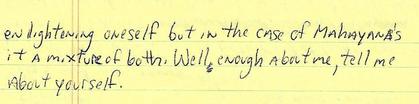 enlightening oneself but in the case of Mahayana's
it a mixture of both. Well, enough about me, tell me
about yourself.